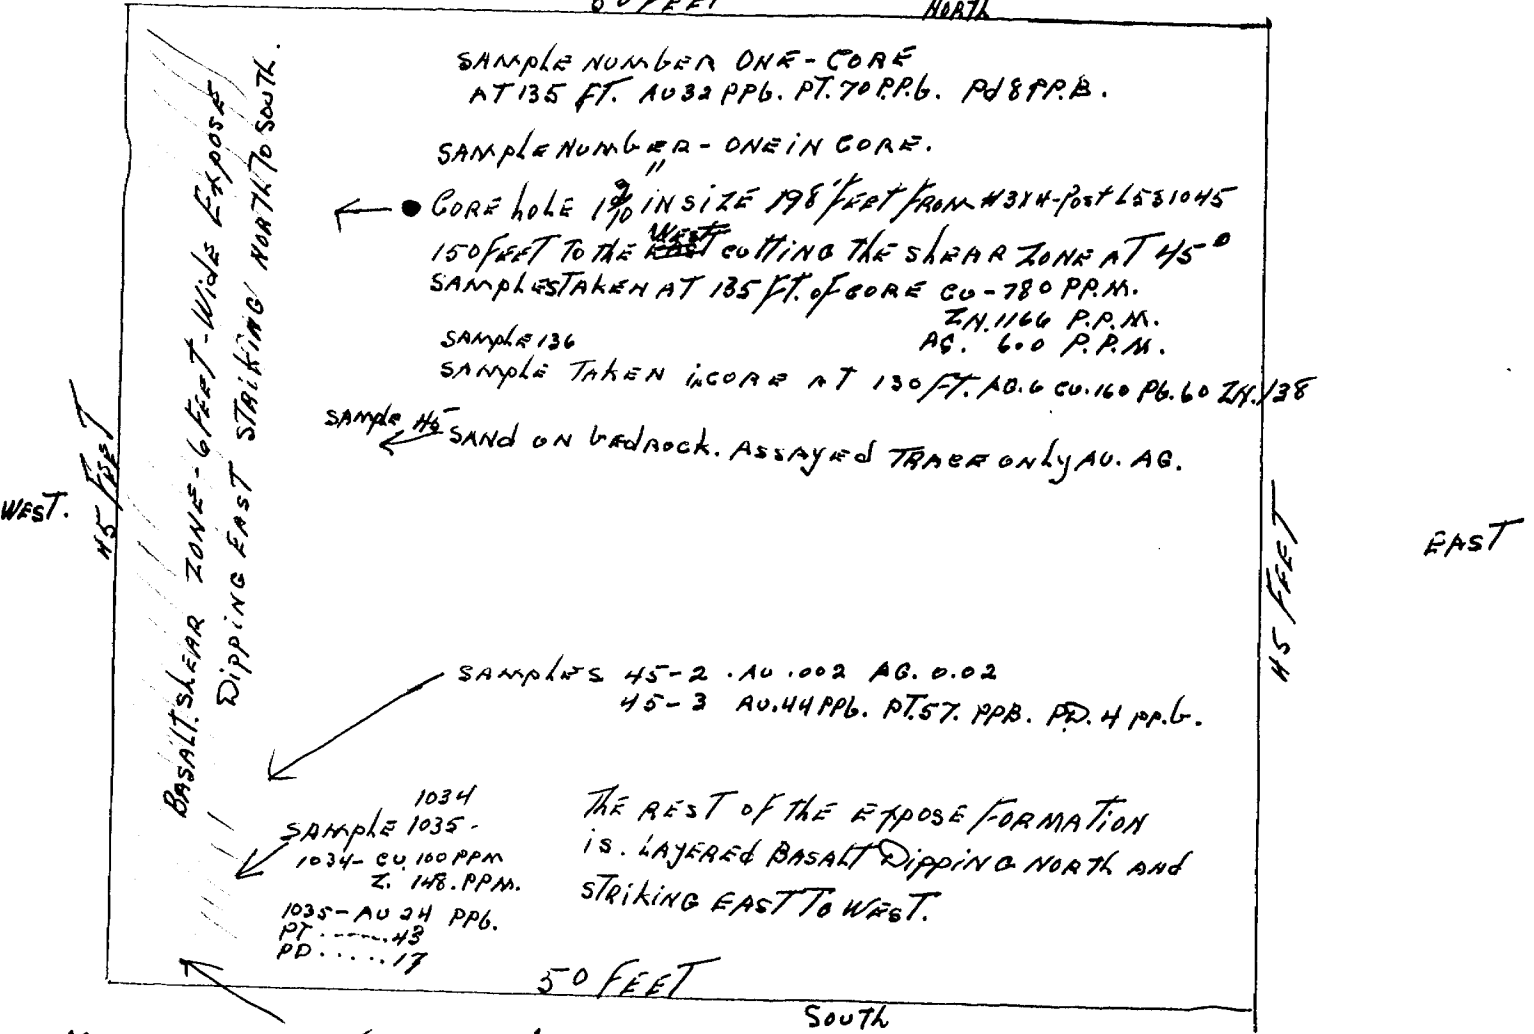 50 FEET NORTH
SAMPLE NUMBER ONE - CORE
AT 135 FT. AU 32 PPb. PT. 70 P.P.b. Pd 8 PP.B.
SAMPLE NUMBER - ONE IN CORE.
CORE hOLE 1 9/10" IN SIZE 198' FEET FROM #3 X 4-POST L531045
150 FEET TO THE WEST CUTTING THE SHEAR ZONE AT 45°
SAMPLES TAKEN AT 135 FT. OF CORE CU - 780 P.P.M.
ZN. 1166 P.P.M.
AG. 6.0 P.P.M.
SAMPLE 136
SAMPLE TAKEN in CORE AT 130 FT. AG. 6 CU. 160 Pb. 60 ZN. 138
SAMPLE 45
SAND ON bEDROCK. ASSAYED TRACE ONLY AU. AG.
BASALT. SHEAR ZONE - 6 FEET - WIDE EXPOSE
DIPPING EAST STRIKING NORTH TO SOUTH.
WEST.
45 FEET
45 FEET
EAST
SAMPLES 45-2 . AU .002 AG. 0.02
45-3 AU. 44 PPb. PT. 57. PPB. PD. 4 PP.b.
1034
SAMPLE 1035 -
1034 - CU 100 PPM
Z. 148. PPM.
1035 - AU 24 PPb.
PT ...... 43
PD ..... 17
THE REST OF THE EXPOSE FORMATION
is. LAYERED BASALT DIPPING NORTH AND
STRIKING EAST TO WEST.
50 FEET
SOUTH